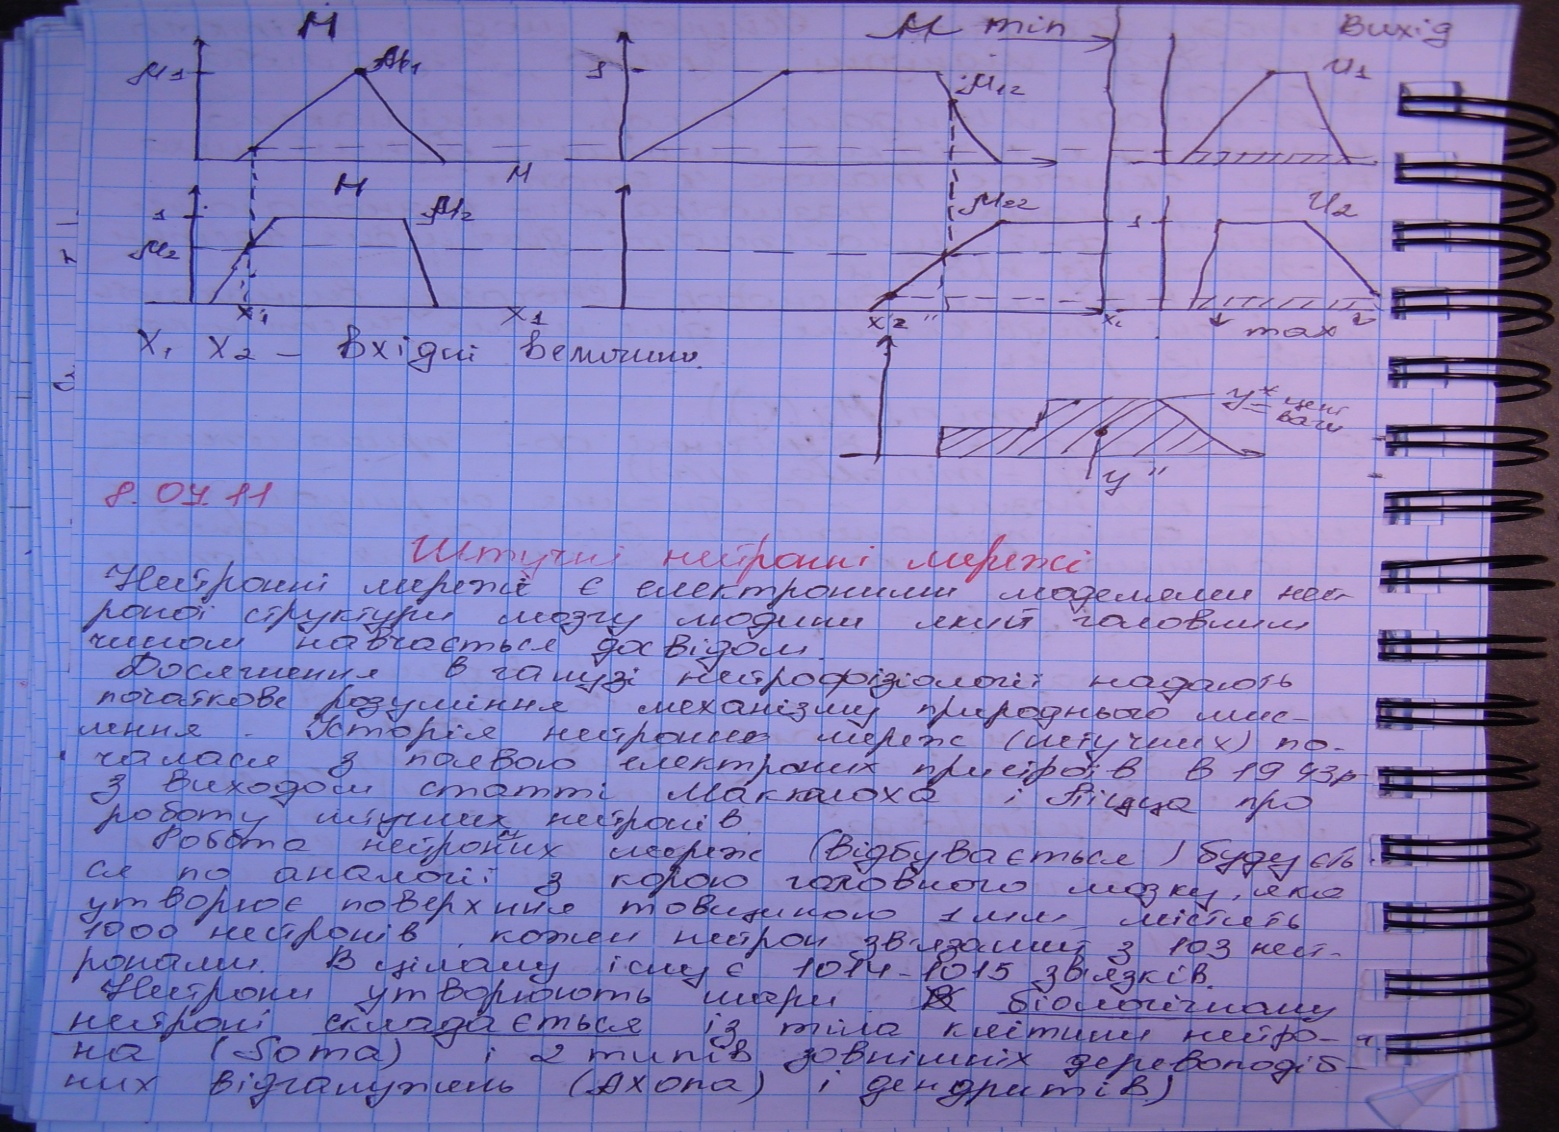 M
M min
Вихід
μ1
1
μ12
U1
M
M
1
μ2
μ22
1
U2
x1
X1
x2"
max
X1 X2 – вхідні величини.
y* = цент ваги
y"
8.04.11
Штучні нейронні мережі
Нейронні мережі є електроними моделями ней-
роної структури мозгу людини який головним
чином навчається досвідом.
Досягнення в галузі нейрофізіології надають
початкове розуміння механізму природнього мис-
лення. Історія нейронних мереж (штучних) по-
чалася з появою електроних пристроїв в 1943р
з виходом статті Маккалоха і Пітца про
роботу штучних нейронів.
Робота нейроних мереж (відбувається) будуєть
ся по аналогії з корою головного мозку, яка
утворює поверхння товщиною 1мм, містить
1000 нейронів, кожен нейрон звязаний з 103 ней-
ронами. В цілому існує 1014-1015 звязків.
Нейрони утворюють шари. В біологічному
нейроні складається із тіла клітини нейро-
на (Soma) і 2 типів зовнішніх деревоподіб-
них відгалужень (Axona) і дендритів)